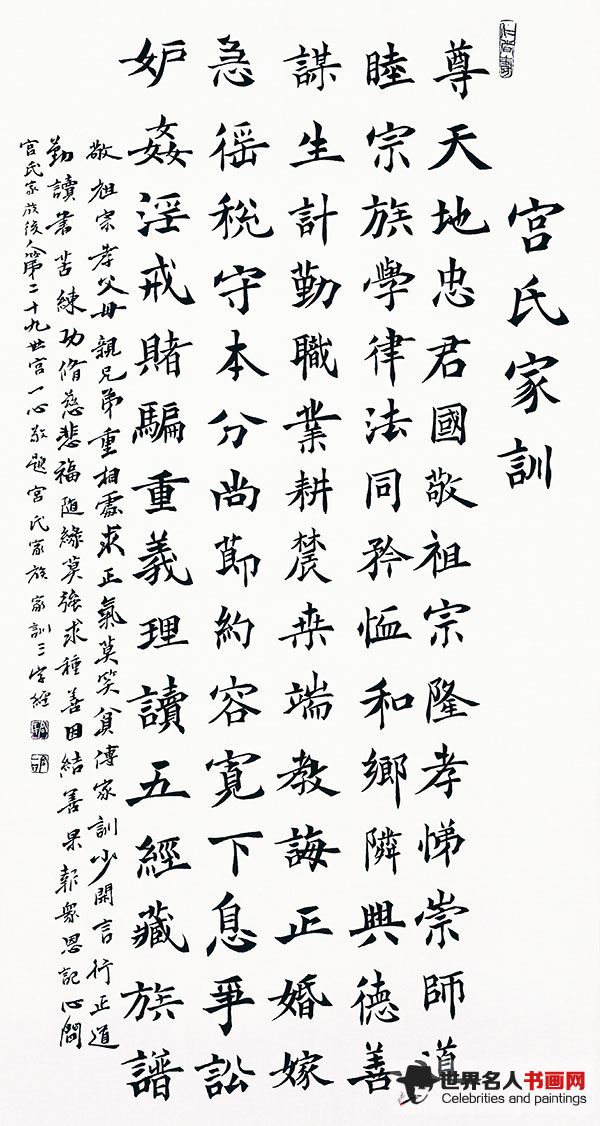 宫氏家訓
尊天地忠君國敬祖宗隆孝悌崇師道
睦宗族學律法同矜恤和鄉隣興德善
謀生計勤職業耕農桒端教誨正婚嫁
急徭税守本分尚節約容寛下息爭訟
妒姦淫戒賭騙重義理讀五經藏族譜
敬祖宗孝父母親兄弟重相處求正氣莫笑貧傳家訓少閑言行正道
勤讀書苦練功脩慈悲福随緣莫強求種善因結善果報衆恩記心間
宫氏家族後人第二十九世宫一心敬題宫氏家族家訓三字經
世界名人书画网
Celebrities and paintings